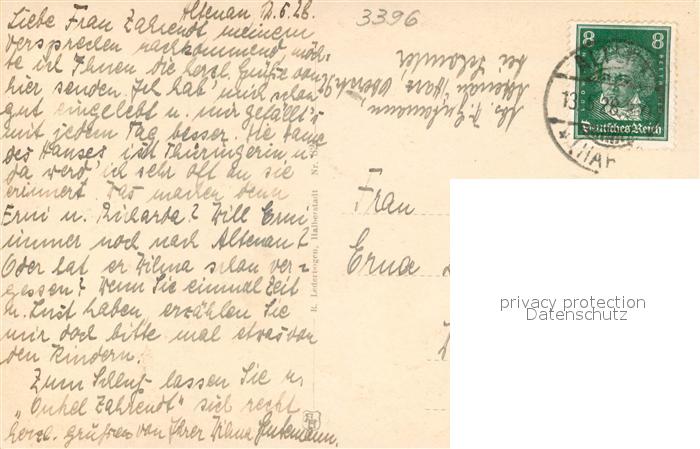 Altenau, 12.6.28.
Liebe Frau Zahrendt meinem
Versprechen nachkommend möch-
te ich Ihnen die herzl. Grüße von
hier senden. Ich hab' mich schon
gut eingelebt u. mir gefällt's
mit jedem Tag besser. Die Dame
des Hauses ist Thüringerin u.
da werd' ich sehr oft an sie
erinnert. Was machen denn
Erni u. Richarda? Will Erni
immer noch nach Altenau?
Oder hat er Wilma schon ver-
gessen? Wenn Sie einmal Zeit
u. Lust haben, erzählen Sie
mir doch bitte mal etwas von
den Kindern.
Zum Schluß lassen Sie u.
"Onkel Zahrendt" sich recht
herzl. grüßen von Ihrer Wilma Gutemann.
3396
Altenau, Harz
bei
R. Lederbogen, Halberstadt
Frau
Erna
8 8
Deutsches Reich
13
privacy protection
Datenschutz